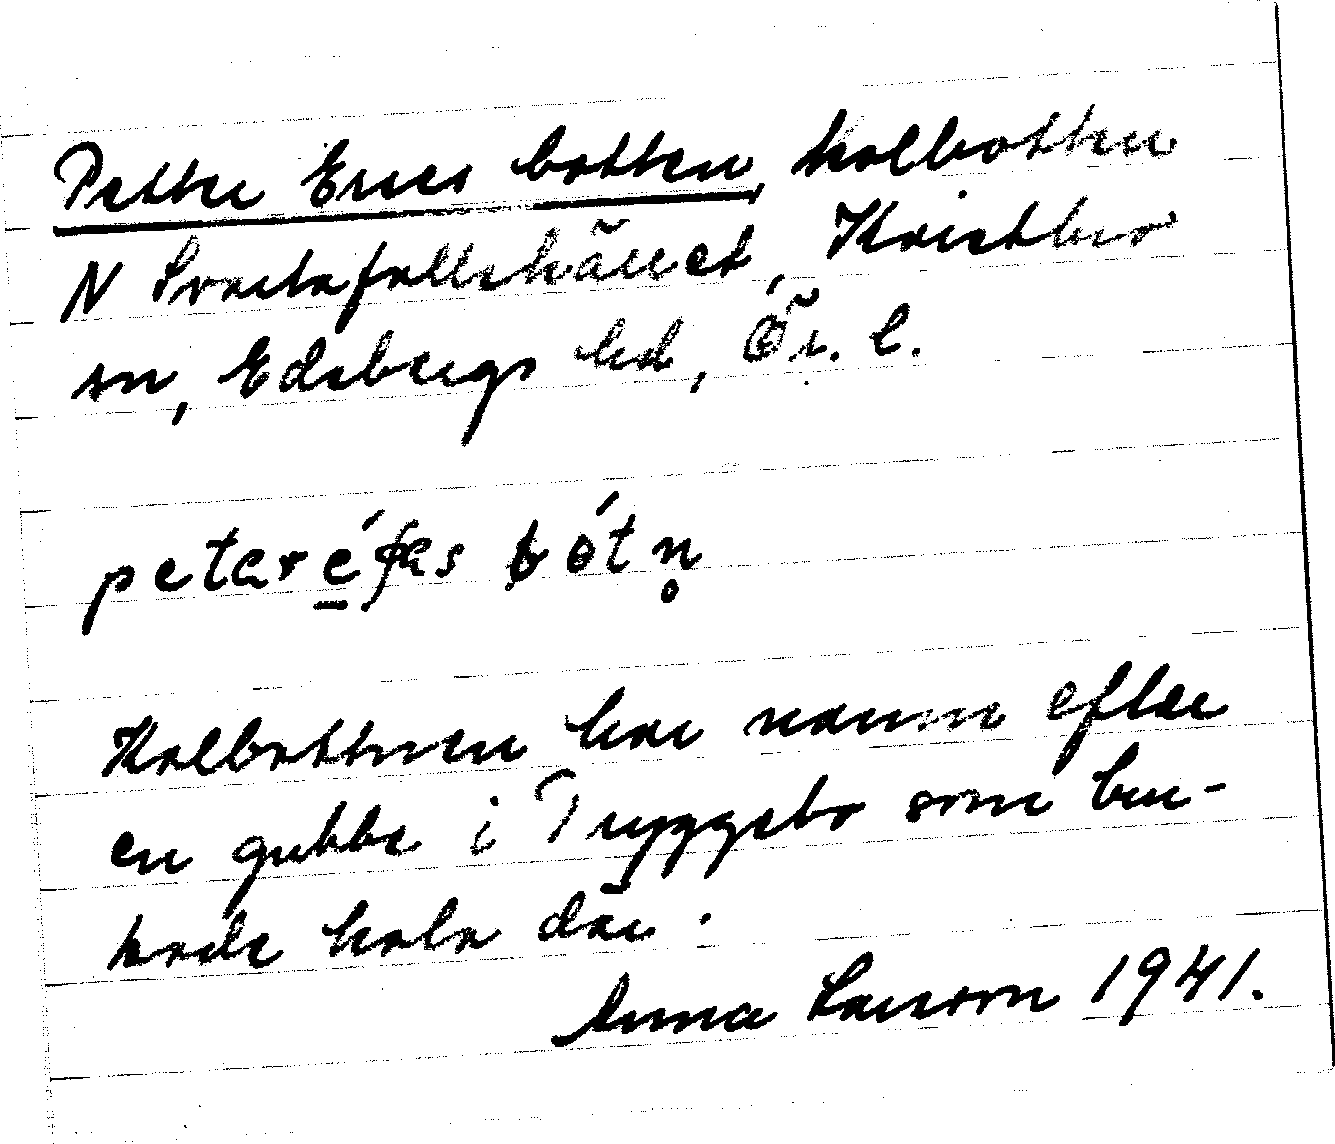 Petter Ers botten, kolbotten
N Svartafallskärret, Kvistbro
sn, Edsbergs hd, Ör. l.
petar
Kolbottnen har namn efter
en gubbe i Tryggebo som bru-
kade kola där.
Anna Larsson 1941.